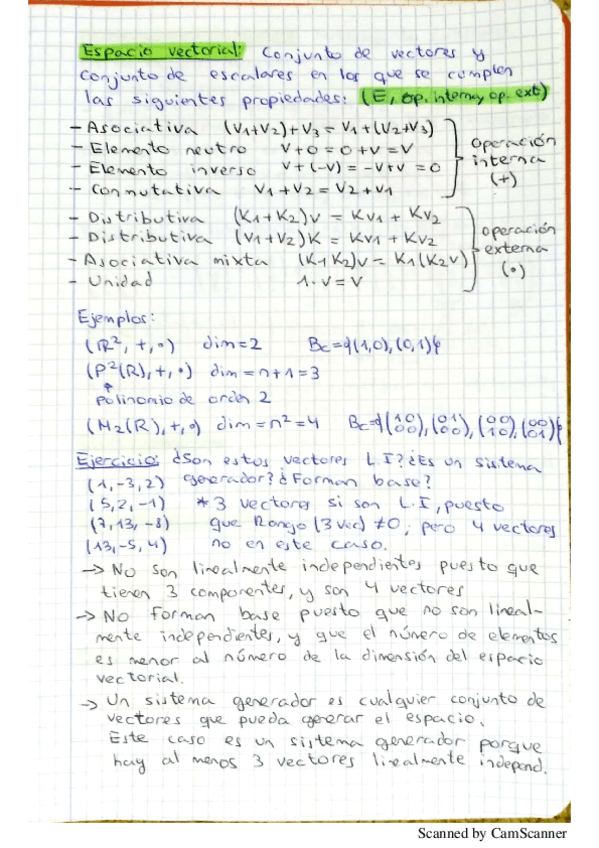 Espacio vectorial: Conjunto de vectores y
conjunto de escalares en los que se cumplen
las siguientes propiedades: (E, op. interna y op. ext)
- Asociativa (V1+V2)+V3 = V1+(V2+V3)
- Elemento neutro V+0=0+V=V
- Elemento inverso V+(-V)=-V+V=0
- Conmutativa V1+V2=V2+V1
Operación
interna
(+)
- Distributiva (K1+K2)V = KV1 + KV2
- Distributiva (V1+V2)K = KV1 + KV2
- Asociativa mixta (K1K2)V = K1(K2V)
- Unidad 1·V=V
operación
externa
(·)
Ejemplos:
(R², +, ·) dim=2 Bc={(1,0),(0,1)}
(P²(R), +, ·) dim=n+1=3
Polinomio de orden 2
(M2(R), +, ·) dim=n²=4 Bc={(1 0 0 0),(0 1 0 0),(0 0 1 0),(0 0 0 1)}
Ejercicio: ¿Son estos vectores L.I? ¿Es un sistema
(1,-3,2) generador? ¿Forman base?
(5,2,-1) * 3 vectores si son L.I, puesto
(7,13,-8) que Rango (3 vec) ≠0; pero 4 vectores
(13,-5,4) no en este caso.
→ No son linealmente independientes puesto que
tienen 3 componentes, y son 4 vectores
→ No forman base puesto que no son lineal-
mente independientes, y que el número de elementos
es menor al número de la dimensión del espacio
vectorial.
→ Un sistema generador es cualquier conjunto de
vectores que pueda generar el espacio.
Este caso es un sistema generador porque
hay al menos 3 vectores linealmente independ.
Scanned by CamScanner